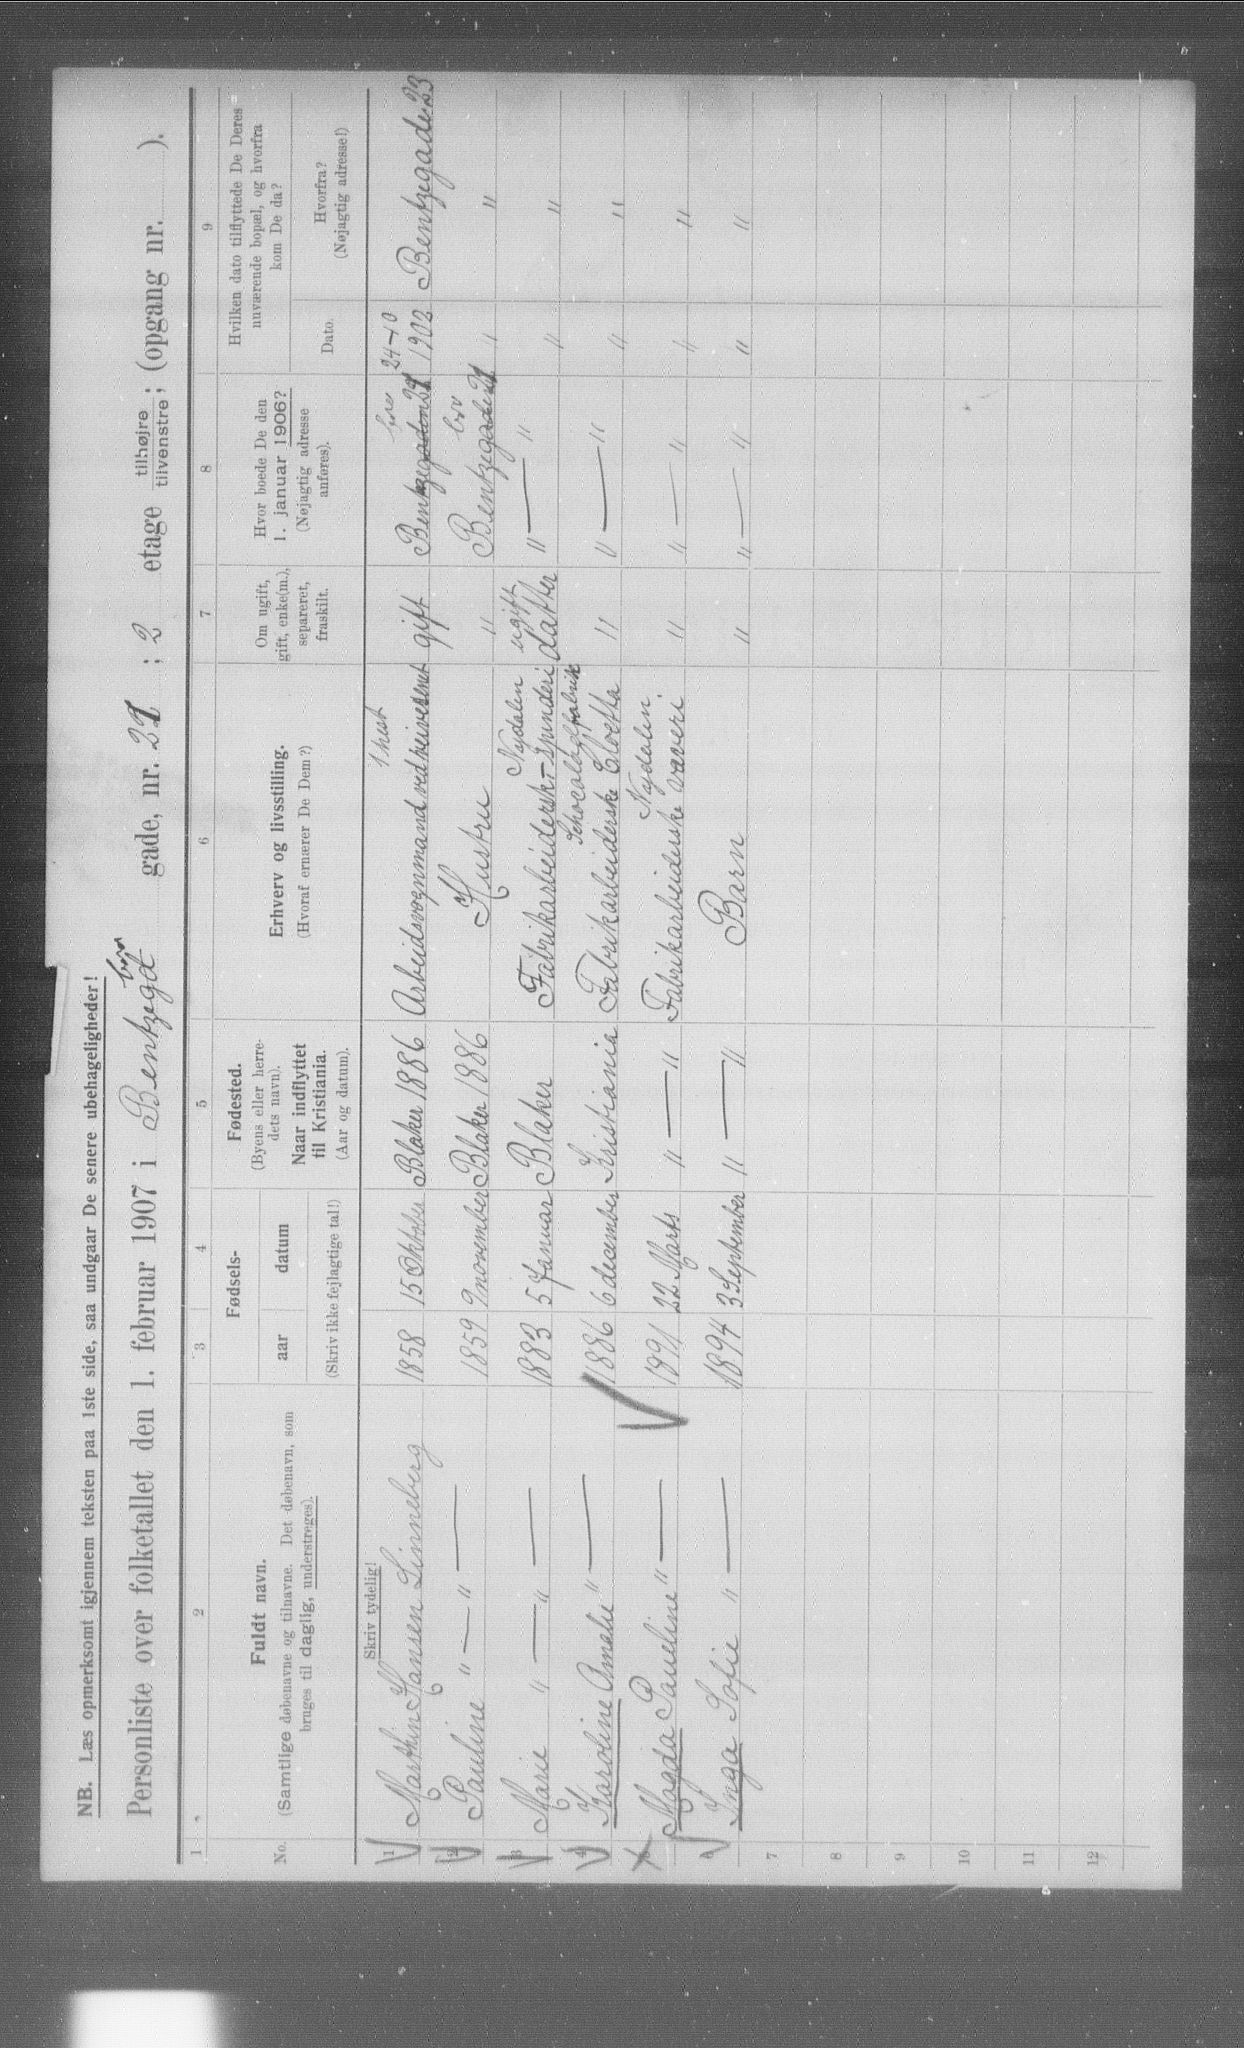 NB. Læs opmerksomt igjennem teksten paa 1ste side, saa undgaar De senere ubehageligheder!
Personliste over folketallet den 1. februar 1907 i Bentzegd gade, nr. ; 2 etage tilhøjre tilvenstre; (opgang nr. ).
1 2 3 4 5 6 7 8 9
No.
Fuldt navn.
(Samtlige døbenavne og tilnavne. Det døbenavn, som
bruges til daglig, understreges).
Fødsels-
aar datum
(Skriv ikke fejlagtige tal!)
Fødested.
(Byens eller herre-
dets navn).
Naar indflyttet
til Kristiania.
(Aar og datum).
Erhverv og livsstilling.
(Hvoraf ernærer De Dem?)
Om ugift,
gift, enke(m.),
separeret,
fraskilt.
Hvor boede De den
1. januar 1906?
(Nøjagtig adresse
anføres).
Hvilken dato tilflyttede De Deres
nuværende bopæl, og hvorfra
kom De da?
Dato.
Hvorfra?
(Nøjagtig adresse!)
Skriv tydelig!
1 hest 24-10
1 Marthin Hansen Linneberg 1858 15 Oktober Blaker 1886 Arbeidsvognmand ved veivesenet gift 1902 Bentzegade 23
2 Pauline " — " — 1859 9 november Blaker 1886 Hustru " " "
Nydalen ugift
3 Marie " — " — 1883 5 Januar Blaker Fabrikarbeiderske Spinderi datter " — " " "
Schocoladefabrik
4 Karoline Amalie " — 1886 6 december Kristiania Fabrikarbeiderske Cloetta " " — " " "
Nydalen
5 Magda Pauline " — 1891 22 Marts " — " Fabrikarbeiderske væveri " " — " " "
6 Inga Sofie " — 1894 3 September " — " Barn " " — " " "
7
8
9
10
11
12